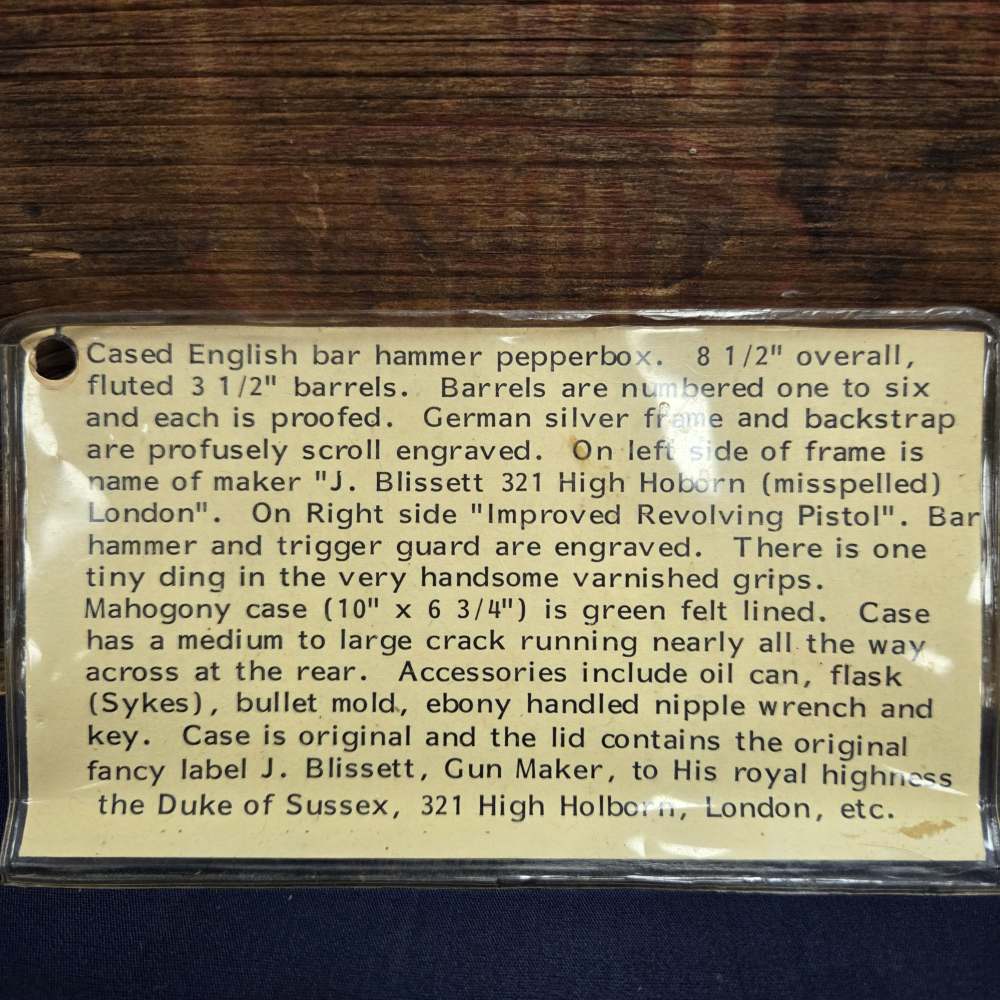 Cased English bar hammer pepperbox.  8 1/2" overall,
fluted 3 1/2" barrels.  Barrels are numbered one to six
and each is proofed.  German silver frame and backstrap
are profusely scroll engraved.  On left side of frame is
name of maker "J. Blissett 321 High Hoborn (misspelled)
London".  On Right side "Improved Revolving Pistol". Bar
hammer and trigger guard are engraved.  There is one
tiny ding in the very handsome varnished grips.
Mahogony case (10" x 6 3/4") is green felt lined.  Case
has a medium to large crack running nearly all the way
across at the rear.  Accessories include oil can, flask
(Sykes), bullet mold, ebony handled nipple wrench and
key.  Case is original and the lid contains the original
fancy label J. Blissett, Gun Maker, to His royal highness
the Duke of Sussex, 321 High Holborn, London, etc.